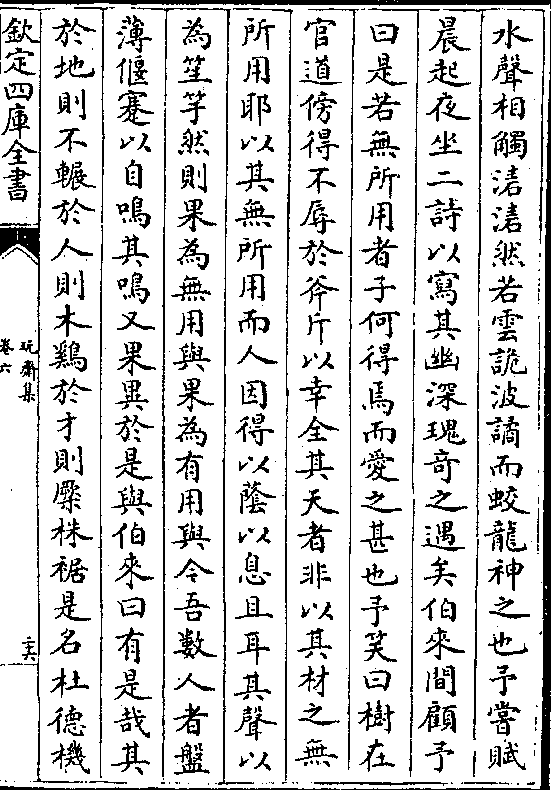 水聲相觸濤濤然若雲詭波譎而蛟龍神之也予嘗賦
晨起夜坐二詩以寫其幽深瑰奇之遇矣伯來間顧予
曰是若無所用者子何得焉而愛之甚也予笑曰樹在
官道傍得不辱於斧斤以幸全其天者非以其材之無
所用耶以其無所用而人因得以蔭以息且耳其聲以
為笙竽然則果為無用與果為有用與今吾數人者盤
薄偃蹇以自鳴其鳴又果異於是與伯來曰有是哉其
於地則不輾於人則木鷄於才則橜株裾是名杜德機
欽定四庫全書
玩齋集
卷六